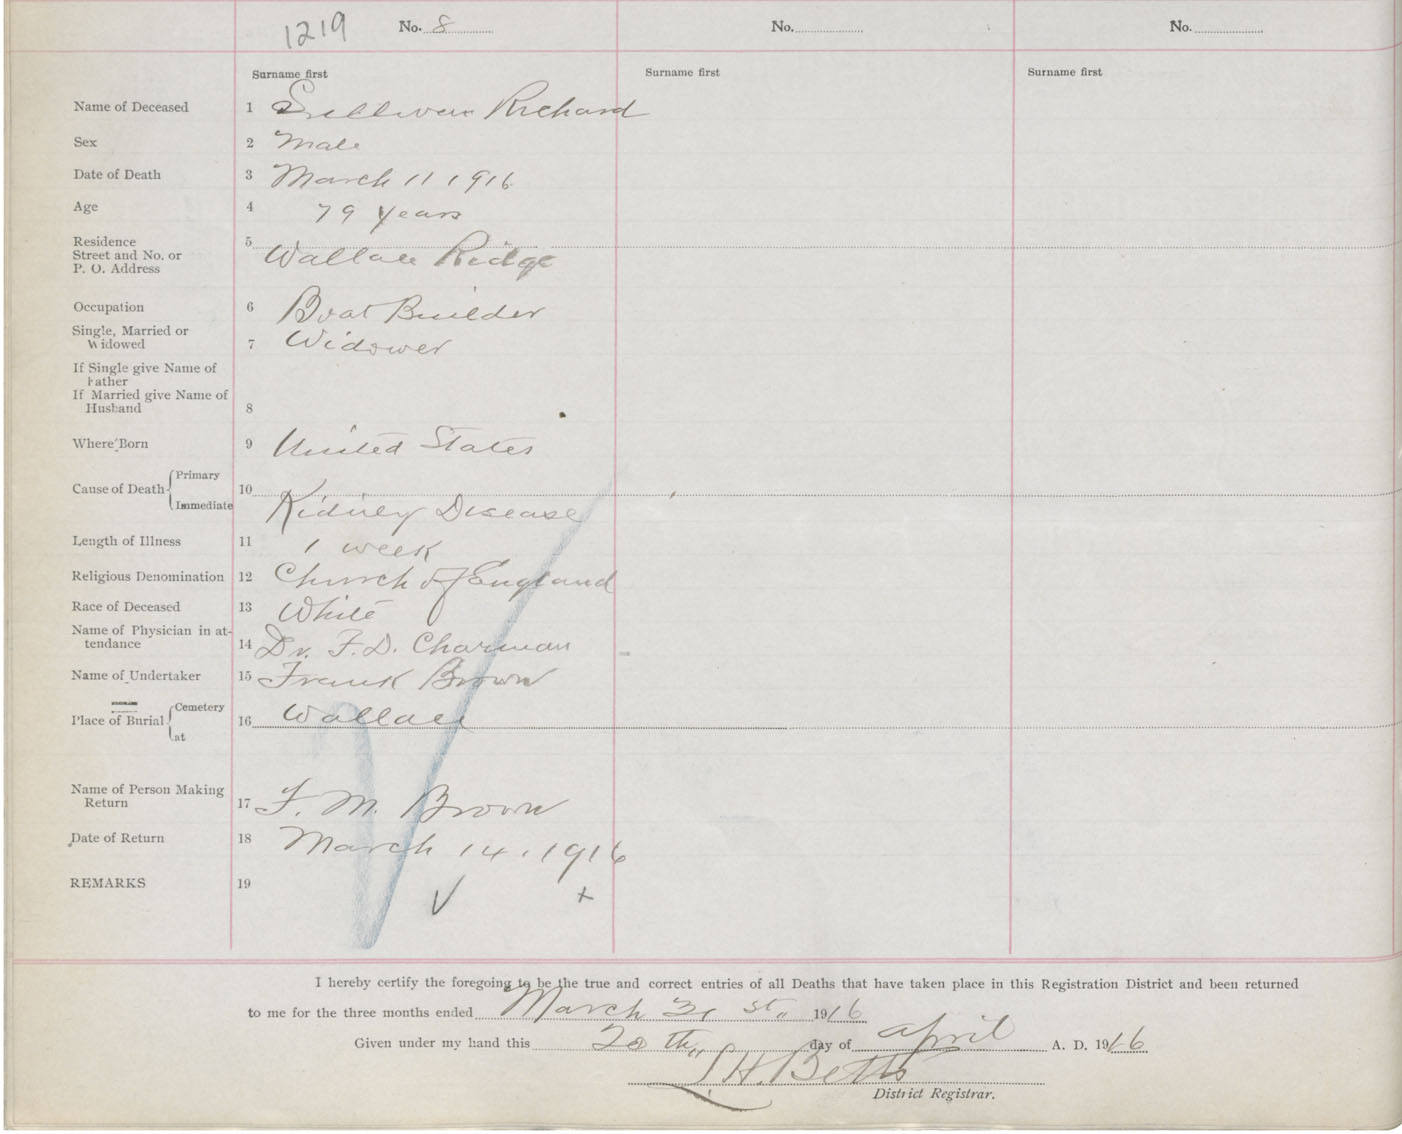 1219 No. 8 No. No.
Surname first Surname first Surname first
Name of Deceased 1 Sullivan Richard
Sex 2 Male
Date of Death 3 March 11 1916
Age 4 79 years
Residence
Street and No. or
P. O. Address 5 Wallace Ridge
Occupation 6 Boat Builder
Single, Married or
Widowed 7 Widower
If Single give Name of
Father
If Married give Name of
Husband 8
Where Born 9 United States
Cause of Death Primary
Immediate 10 Kidney Disease
Length of Illness 11 1 week
Religious Denomination 12 Church of England
Race of Deceased 13 White
Name of Physician in at-
tendance 14 Dr. F. D. Charman
Name of Undertaker 15 Frank Brown
Place of Burial Cemetery
at 16 Wallace
Name of Person Making
Return 17 F. M. Brown
Date of Return 18 March 14, 1916
REMARKS 19
I hereby certify the foregoing to be the true and correct entries of all Deaths that have taken place in this Registration District and been returned
to me for the three months ended March 31 st. 1916
Given under my hand this 20 th day of April A. D. 1916
H. Betts
District Registrar.